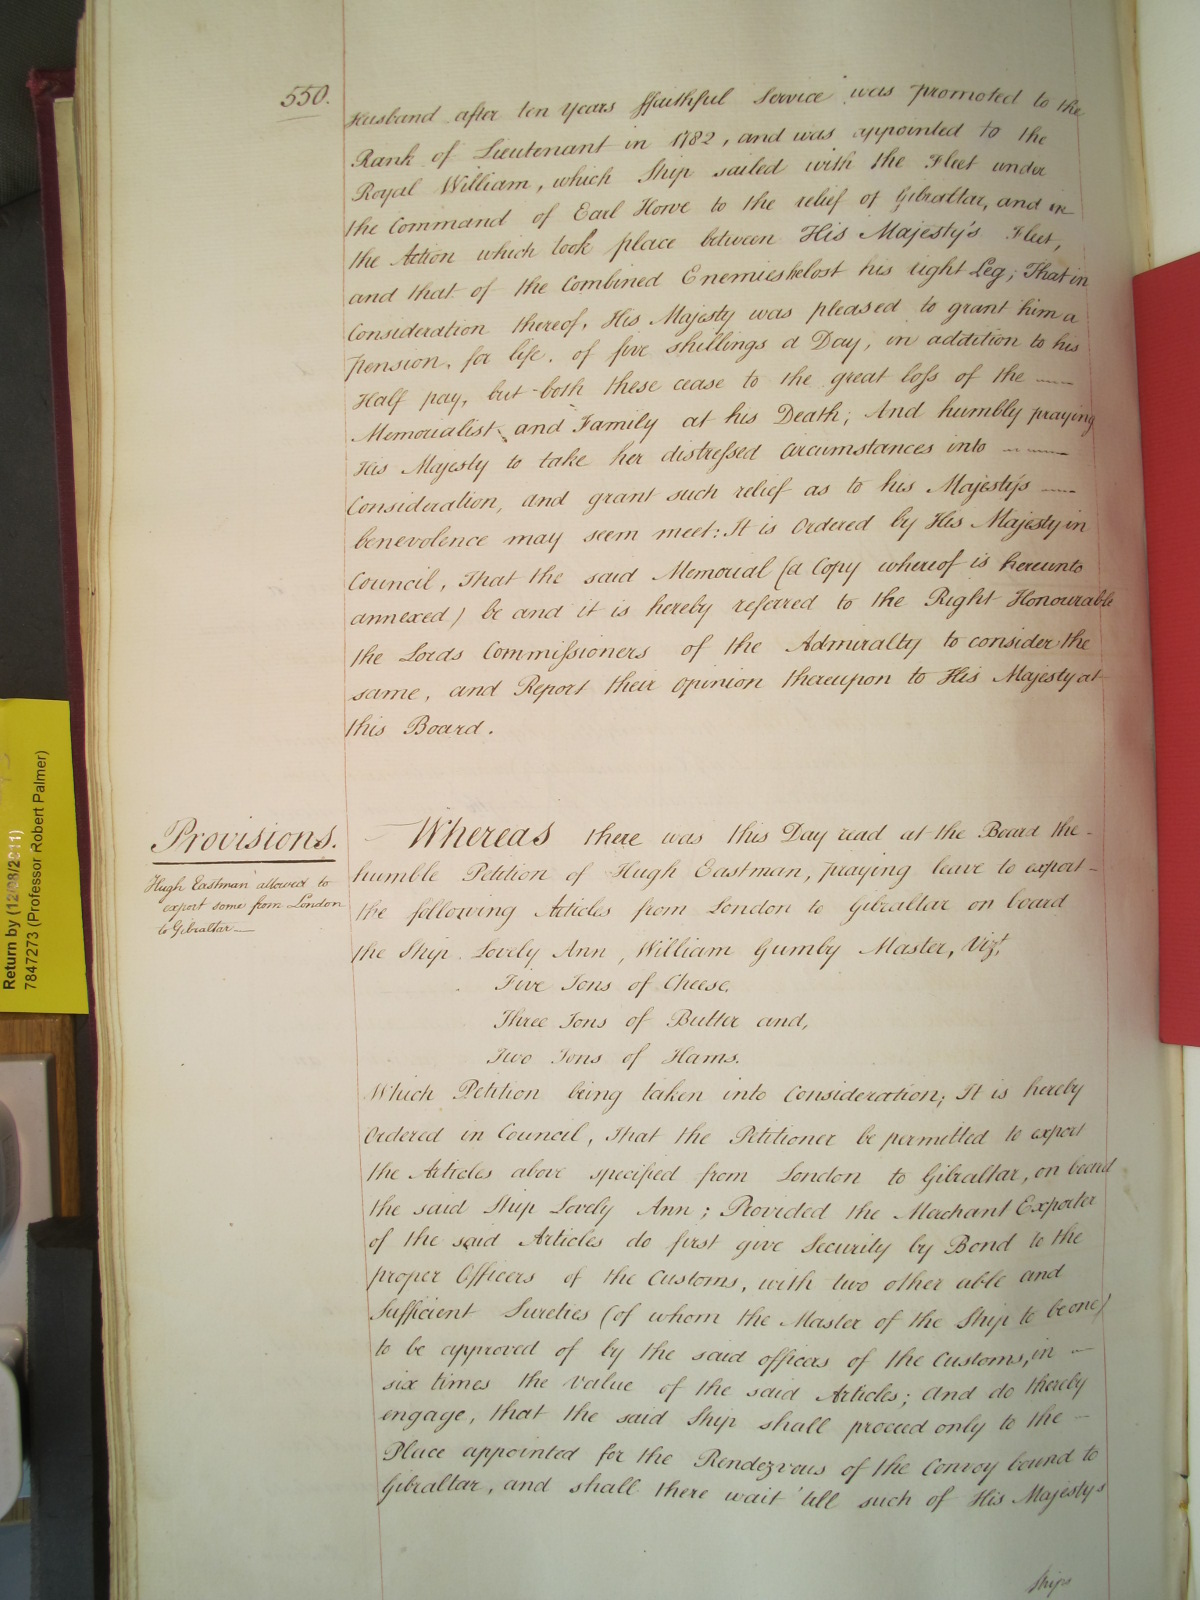 550.
Husband after ten Years ffaithful Service was promoted to the
Rank of Lieutenant in 1782, and was appointed to the
Royal William, which Ship sailed with the Fleet under
the Command of Earl Howe to the relief of Gibraltar, and in
the Action which took place between His Majesty's Fleet,
and that of the Combined Enemies he lost his right Leg; That in
Consideration thereof, His Majesty was pleased to grant him a
pension, for life, of five shillings a Day, in addition to his
Half pay, but both these cease to the great loss of the
Memorialist and Family at his Death; And humbly praying
His Majesty to take her distressed Circumstances into
Consideration, and grant such relief as to his Majesty's
benevolence may seem meet: It is Ordered by His Majesty in
Council, That the said Memorial (a Copy whereof is hereunto
annexed) be and it is hereby referred to the Right Honourable
the Lords Commissioners of the Admiralty to consider the
same, and Report their opinion thereupon to His Majesty at
this Board.
Provisions.
Hugh Eastman allowed to
export some from London
to Gibraltar
Whereas there was this Day read at the Board the
humble Petition of Hugh Eastman, praying leave to export
the following Articles from London to Gibraltar on board
the Ship Lovely Ann, William Gumby Master, Vizt.
Five Tons of Cheese,
Three Tons of Butter and,
Two Tons of Hams.
Which Petition being taken into Consideration; It is hereby
Ordered in Council, That the Petitioner be permitted to export
the Articles above specified from London to Gibraltar, on board
the said Ship Lovely Ann; Provided the Merchant Exporter
of the said Articles do first give Security by Bond to the
proper Officers of the Customs, with two other able and
Sufficient Sureties (of whom the Master of the Ship to be one)
to be approved of by the said officers of the Customs, in
six times the value of the said Articles; and do thereby
engage, that the said Ship shall proceed only to the
Place appointed for the Rendezvous of the Convoy bound to
Gibraltar, and shall there wait 'till such of His Majesty's
Ships
Return by (12/08/2011)
7847273 (Professor Robert Palmer)